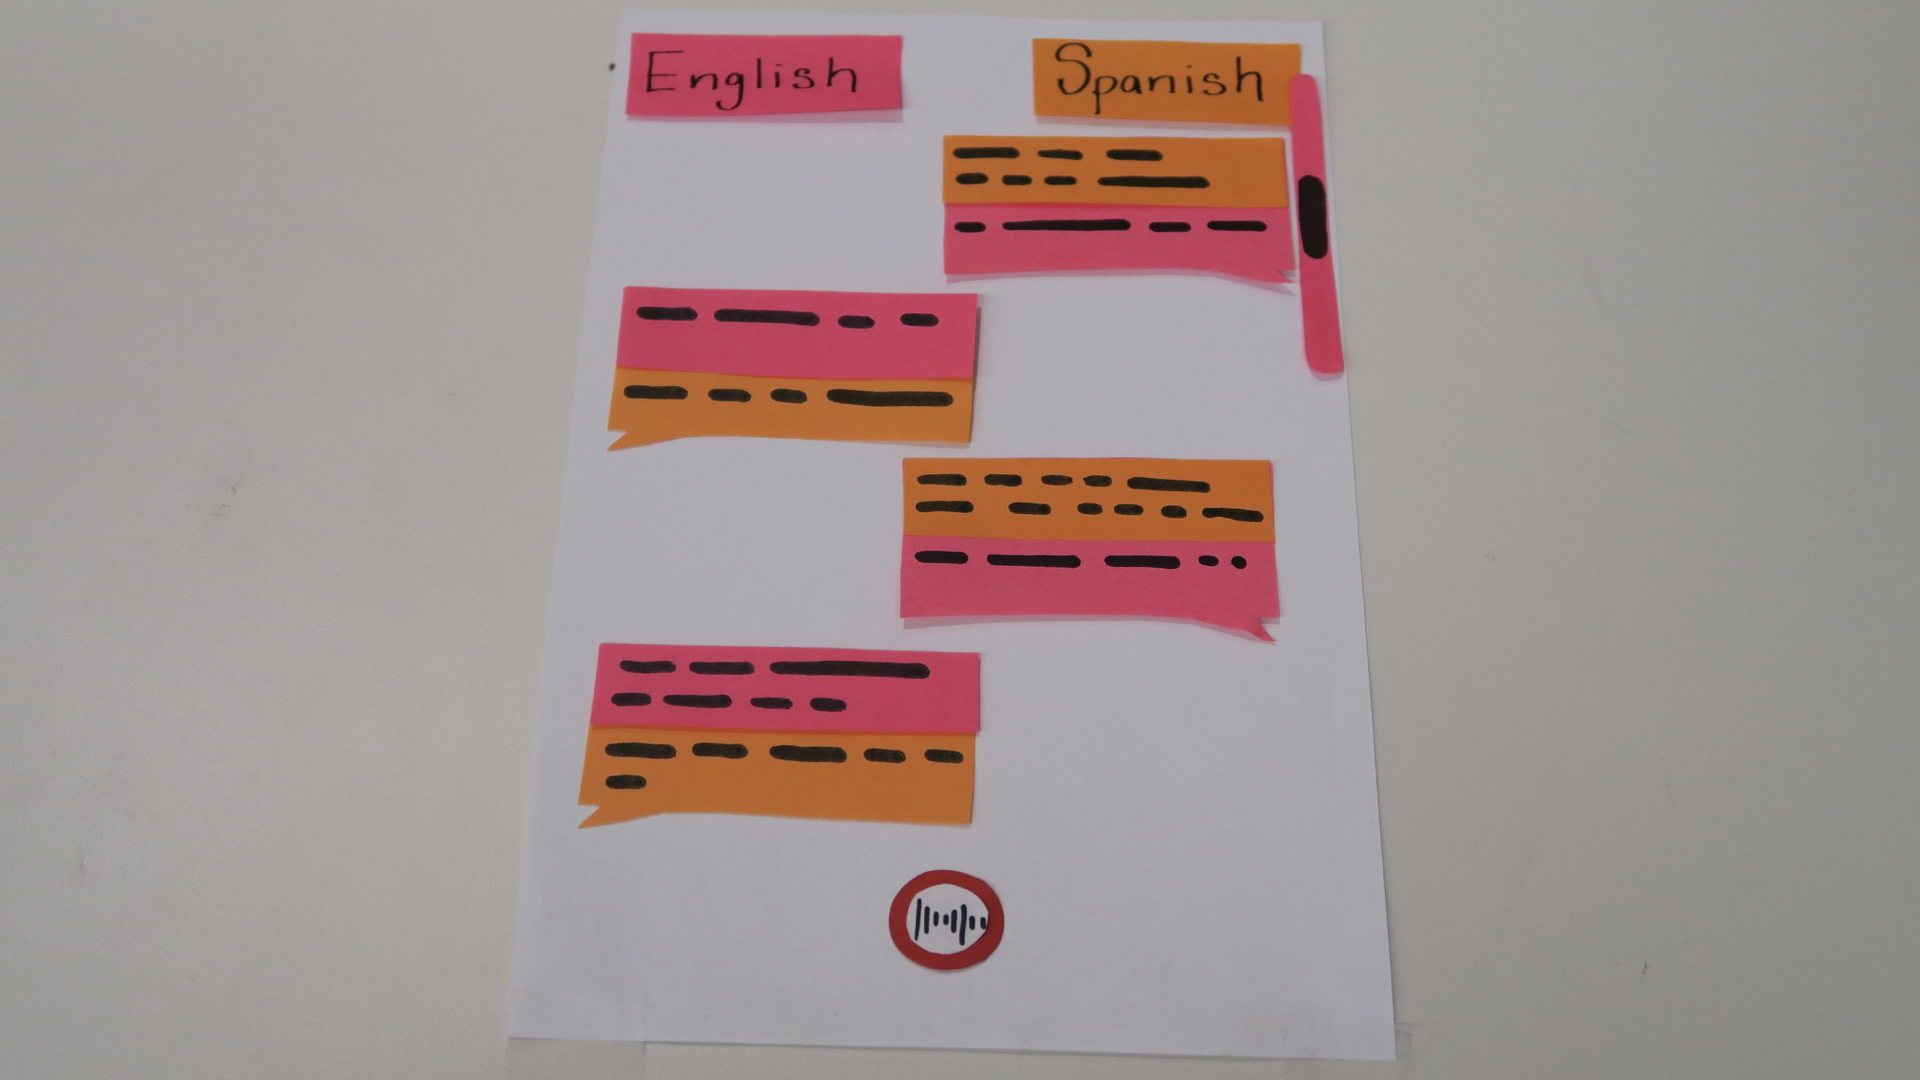 English
Spanish